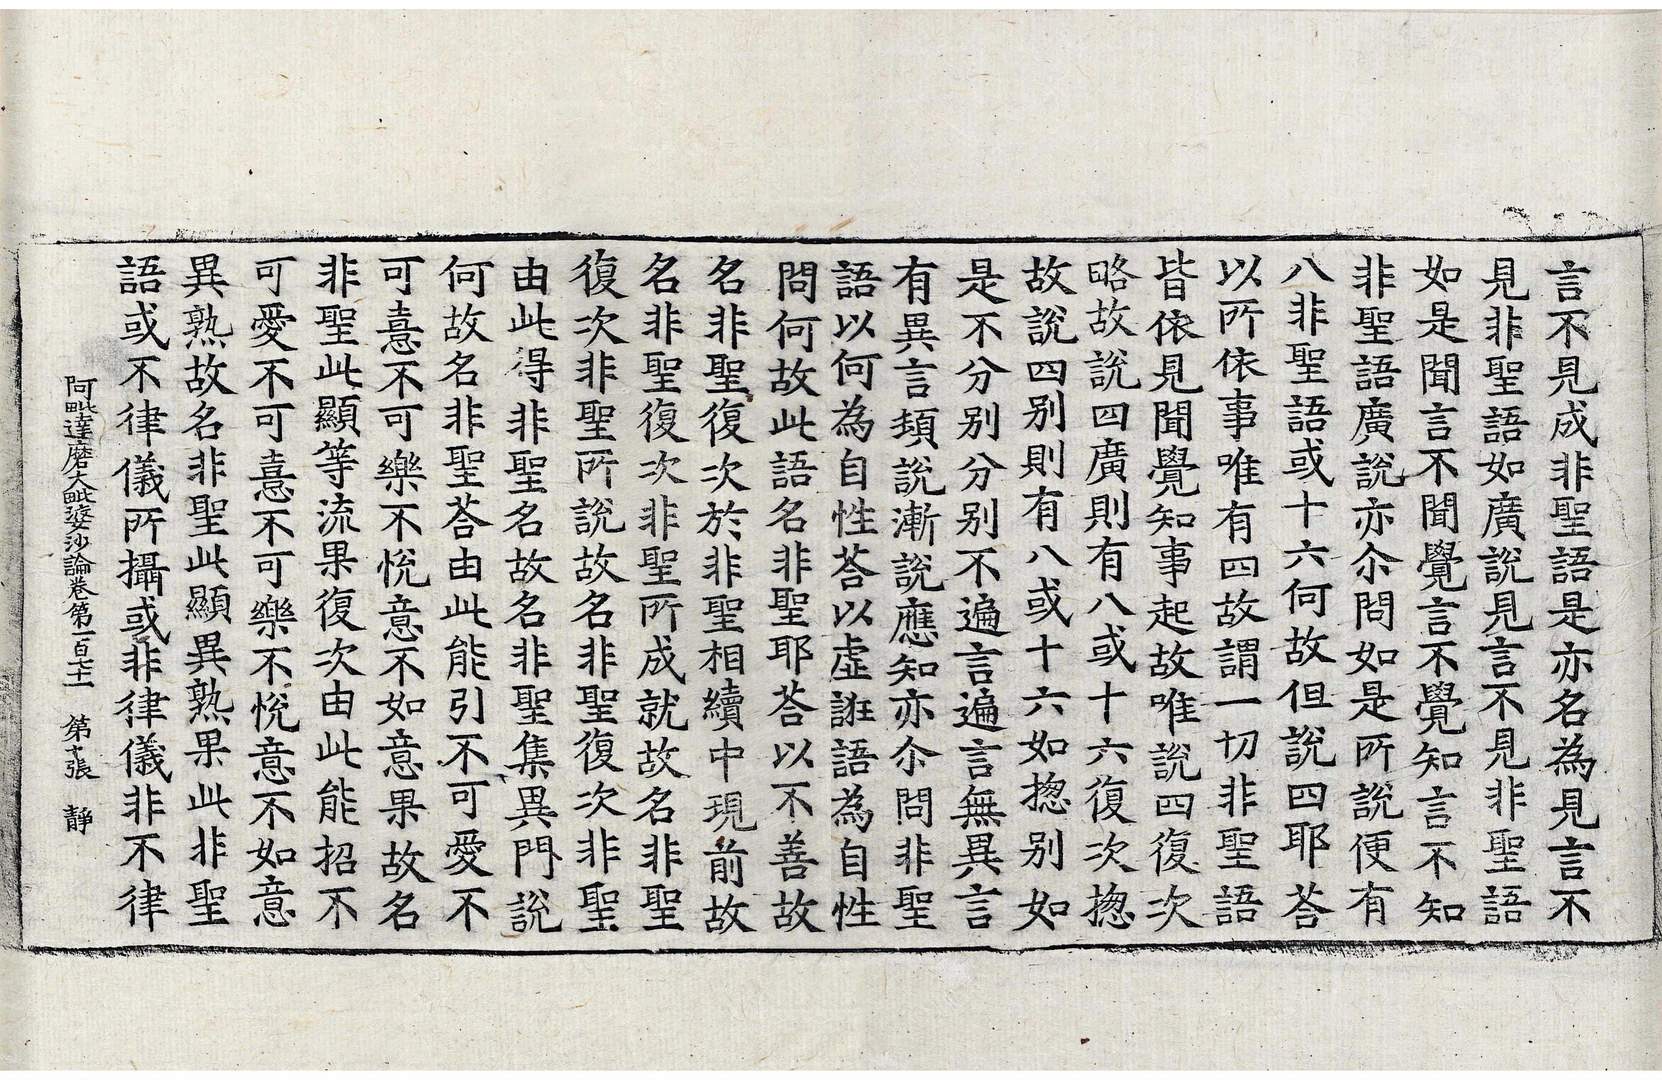 言不見成非聖語是亦名為見言不
見非聖語如廣說見言不見非聖語
如是聞言不聞覺言不覺知言不知
非聖語廣說亦尒問如是所說便有
八非聖語或十六何故但說四耶荅
以所依事唯有四故謂一切非聖語
皆依見聞覺知事起故唯說四復次
略故說四廣則有八或十六復次揔
故說四別則有八或十六如揔別如
是不分別分別不遍言遍言無異言
有異言頓說漸說應知亦尒問非聖
語以何為自性荅以虛誑語為自性
問何故此語名非聖耶荅以不善故
名非聖復次於非聖相續中現前故
名非聖復次非聖所成就故名非聖
復次非聖所說故名非聖復次非聖
由此得非聖名故名非聖集異門說
何故名非聖荅由此能引不可愛不
可憙不可樂不悅意不如意果故名
非聖此顯等流果復次由此能招不
可愛不可憙不可樂不悅意不如意
異熟故名非聖此顯異熟果此非聖
語或不律儀所攝或非律儀非不律
阿毗達磨大毗婆沙論卷第一百七十一 第十張 靜